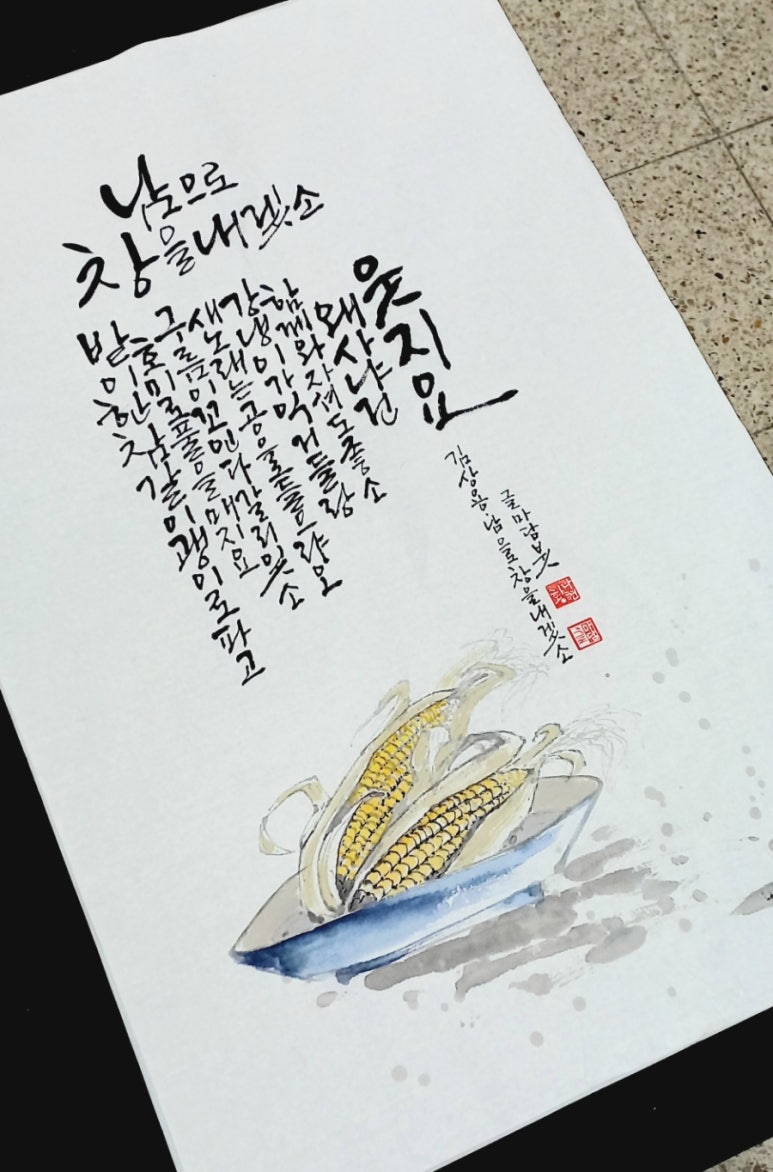 남으로
창을내겠소
밭이한참갈이괭이로파고
호미로풀을매지요
구름이꼬인다갈리있소
새노래는공으로들으랴오
강냉이가익거들랑
함께와자셔도좋소
왜사냐건
웃지요
김상용 남으로 창을내겠소
글마담붓